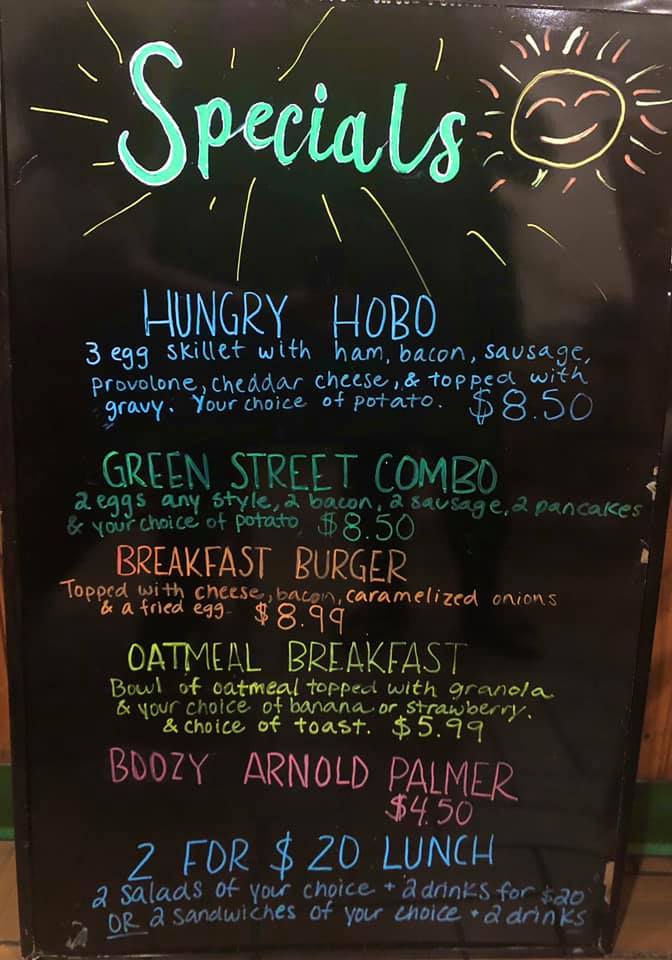 Specials
HUNGRY HOBO
3 egg skillet with ham, bacon, sausage,
provolone, cheddar cheese, & topped with
gravy. Your choice of potato. $8.50
GREEN STREET COMBO
2 eggs any style, 2 bacon, 2 sausage, 2 pancakes
& your choice of potato $8.50
BREAKFAST BURGER
Topped with cheese, bacon, caramelized onions
& a fried egg $8.99
OATMEAL BREAKFAST
Bowl of oatmeal topped with granola
& your choice of banana or strawberry.
& choice of toast. $5.99
BOOZY ARNOLD PALMER
$4.50
2 FOR $20 LUNCH
2 salads of your choice + 2 drinks for $20
OR 2 sandwiches of your choice + 2 drinks